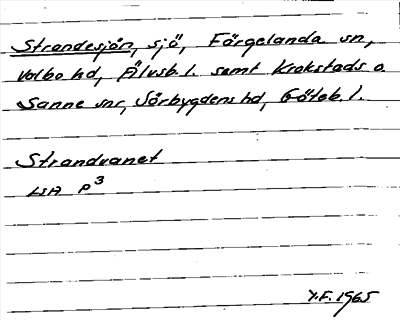 Strandesjön, sjö, Färgelanda sn,
Valbo hd, Älvsb. l. samt Krokstads o.
Sanne snr, Sörbygdens hd, Göteb. l.
Strandvanet
LSA P³
Y.F. 1965